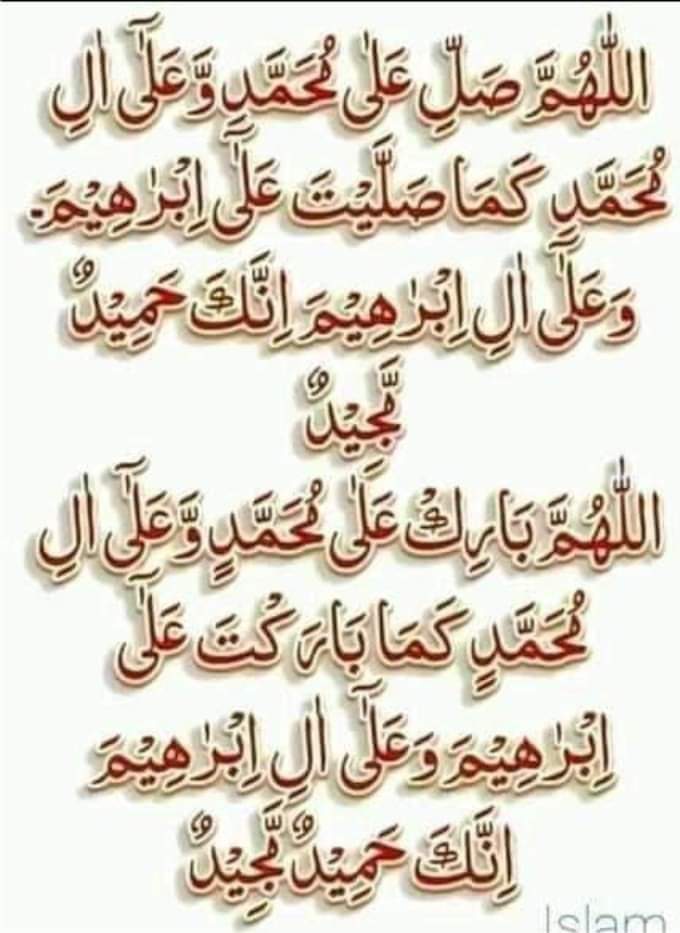 اللّٰهُمَّ صَلِّ عَلٰی مُحَمَّدٍ وَّعَلٰٓی اٰلِ
مُحَمَّدٍ كَمَا صَلَّيْتَ عَلٰٓی اِبْرٰهِيْمَ۔
وَعَلٰٓی اٰلِ اِبْرٰهِيْمَ اِنَّكَ حَمِيْدٌ
مَّجِيْدٌ
اللّٰهُمَّ بَارِكْ عَلٰی مُحَمَّدٍ وَّعَلٰٓی اٰلِ
مُحَمَّدٍ كَمَا بَارَكْتَ عَلٰٓی
اِبْرٰهِيْمَ وَعَلٰٓی اٰلِ اِبْرٰهِيْمَ
اِنَّكَ حَمِيْدٌ مَّجِيْدٌ
Islam